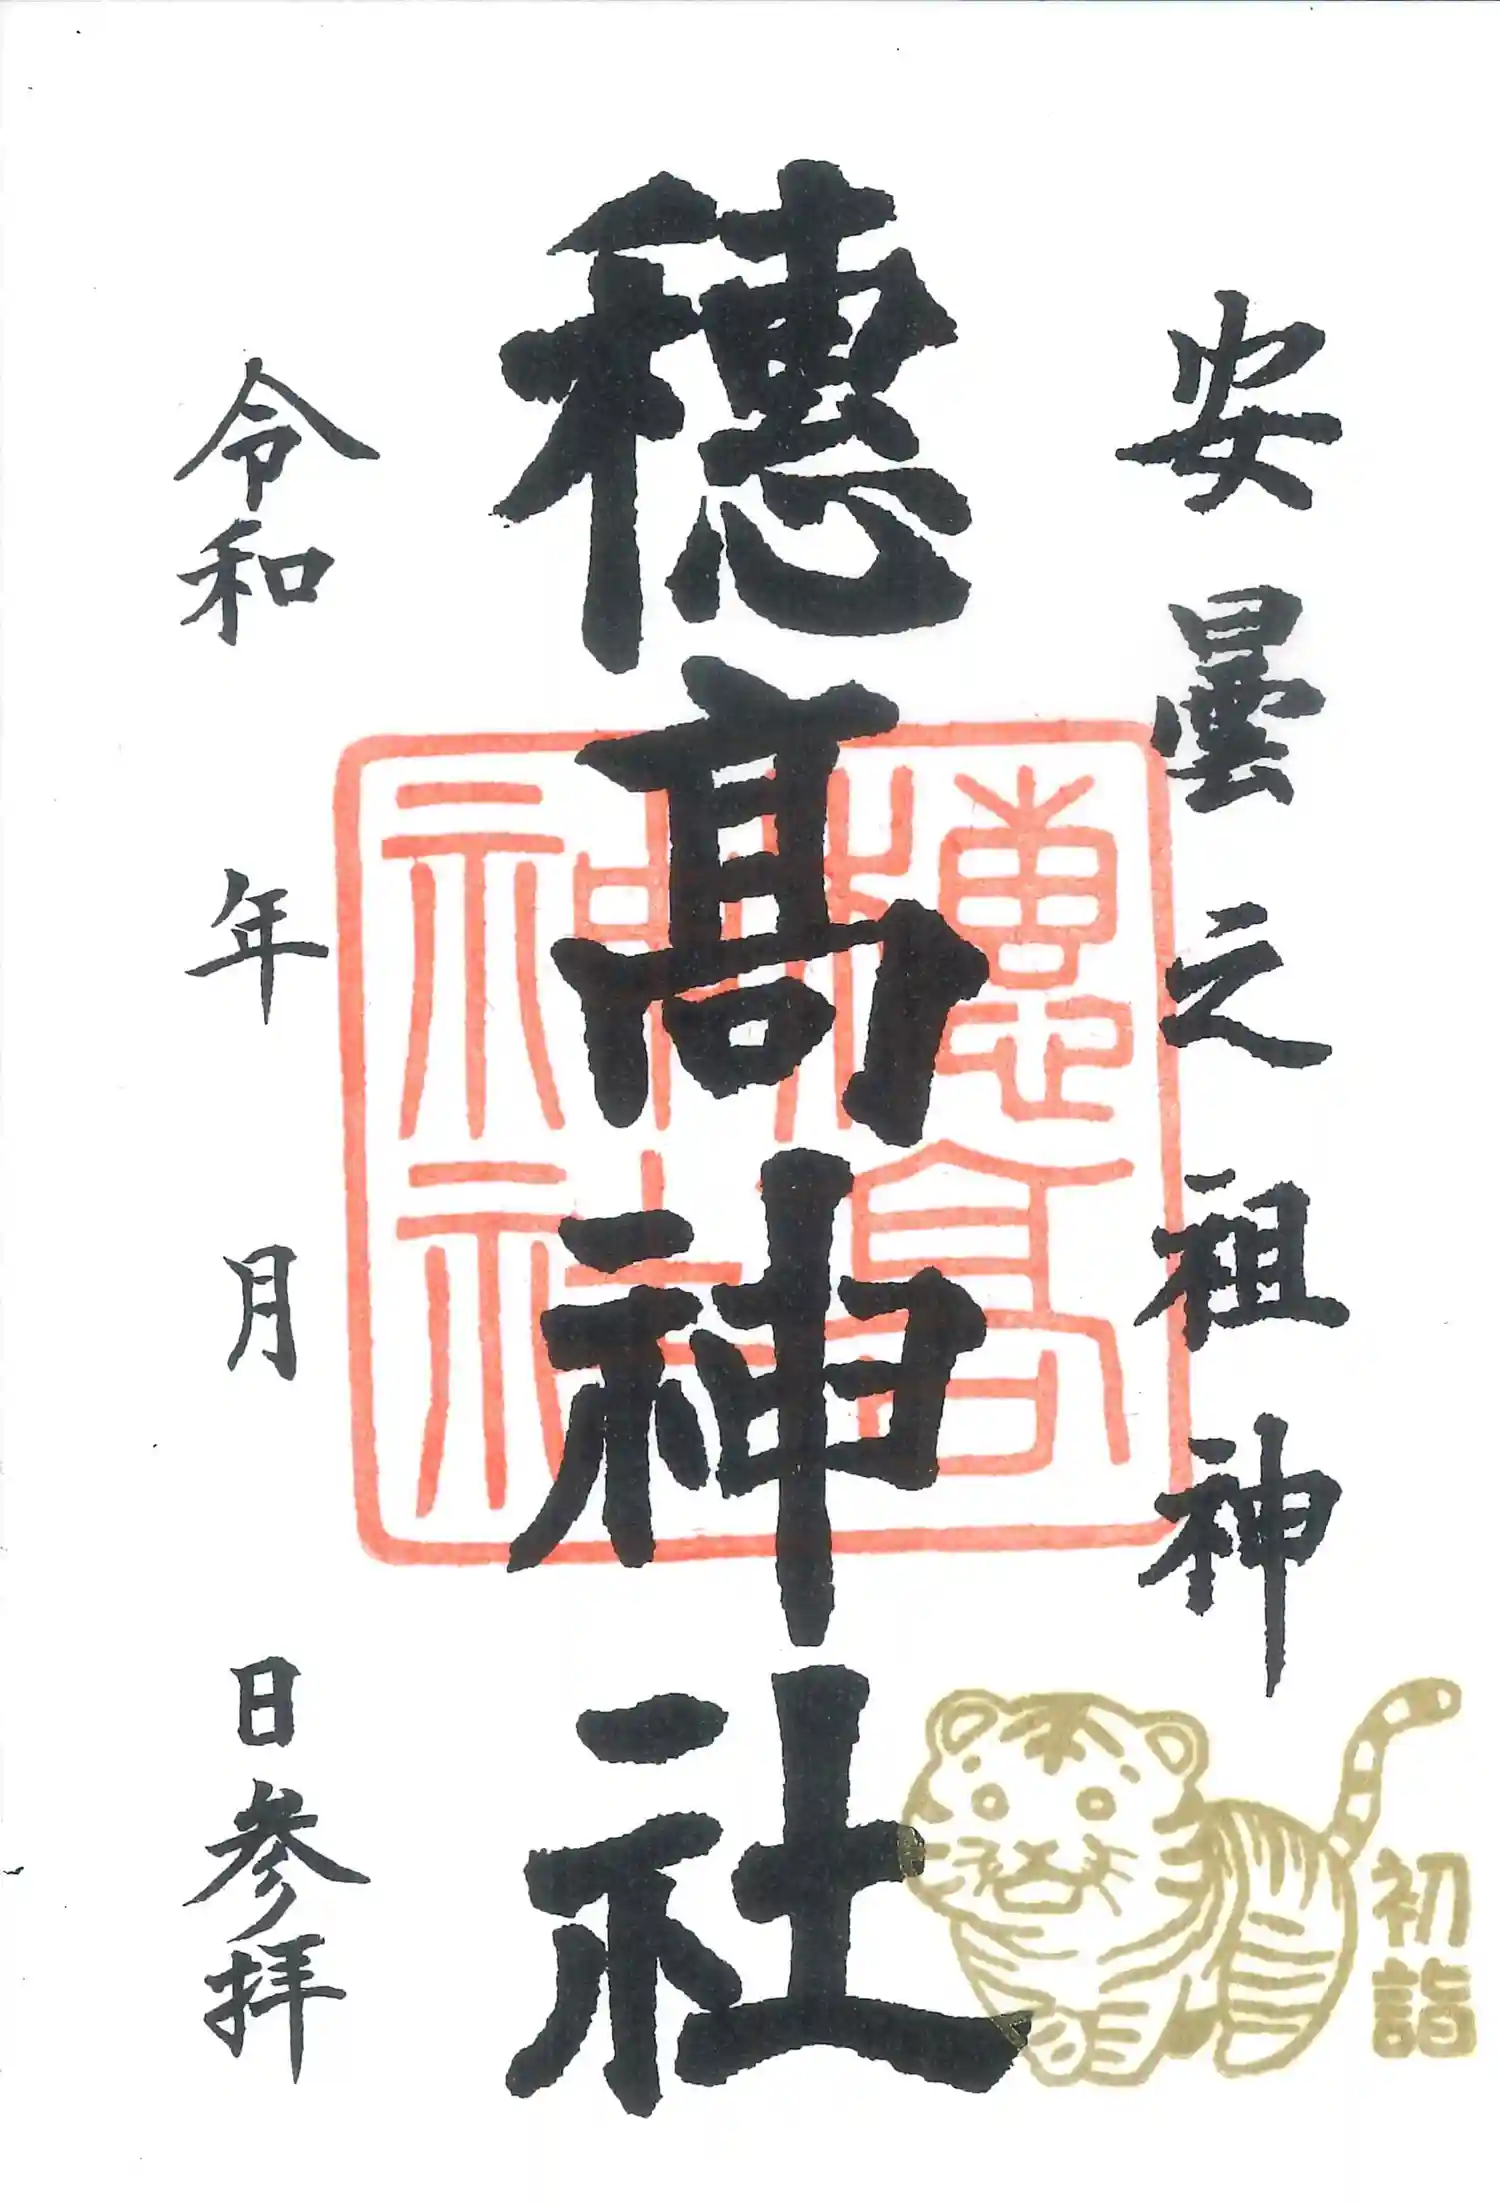 安曇之祖神
穂髙神社
令和 年 月 日参拝
穂高
神社
初詣